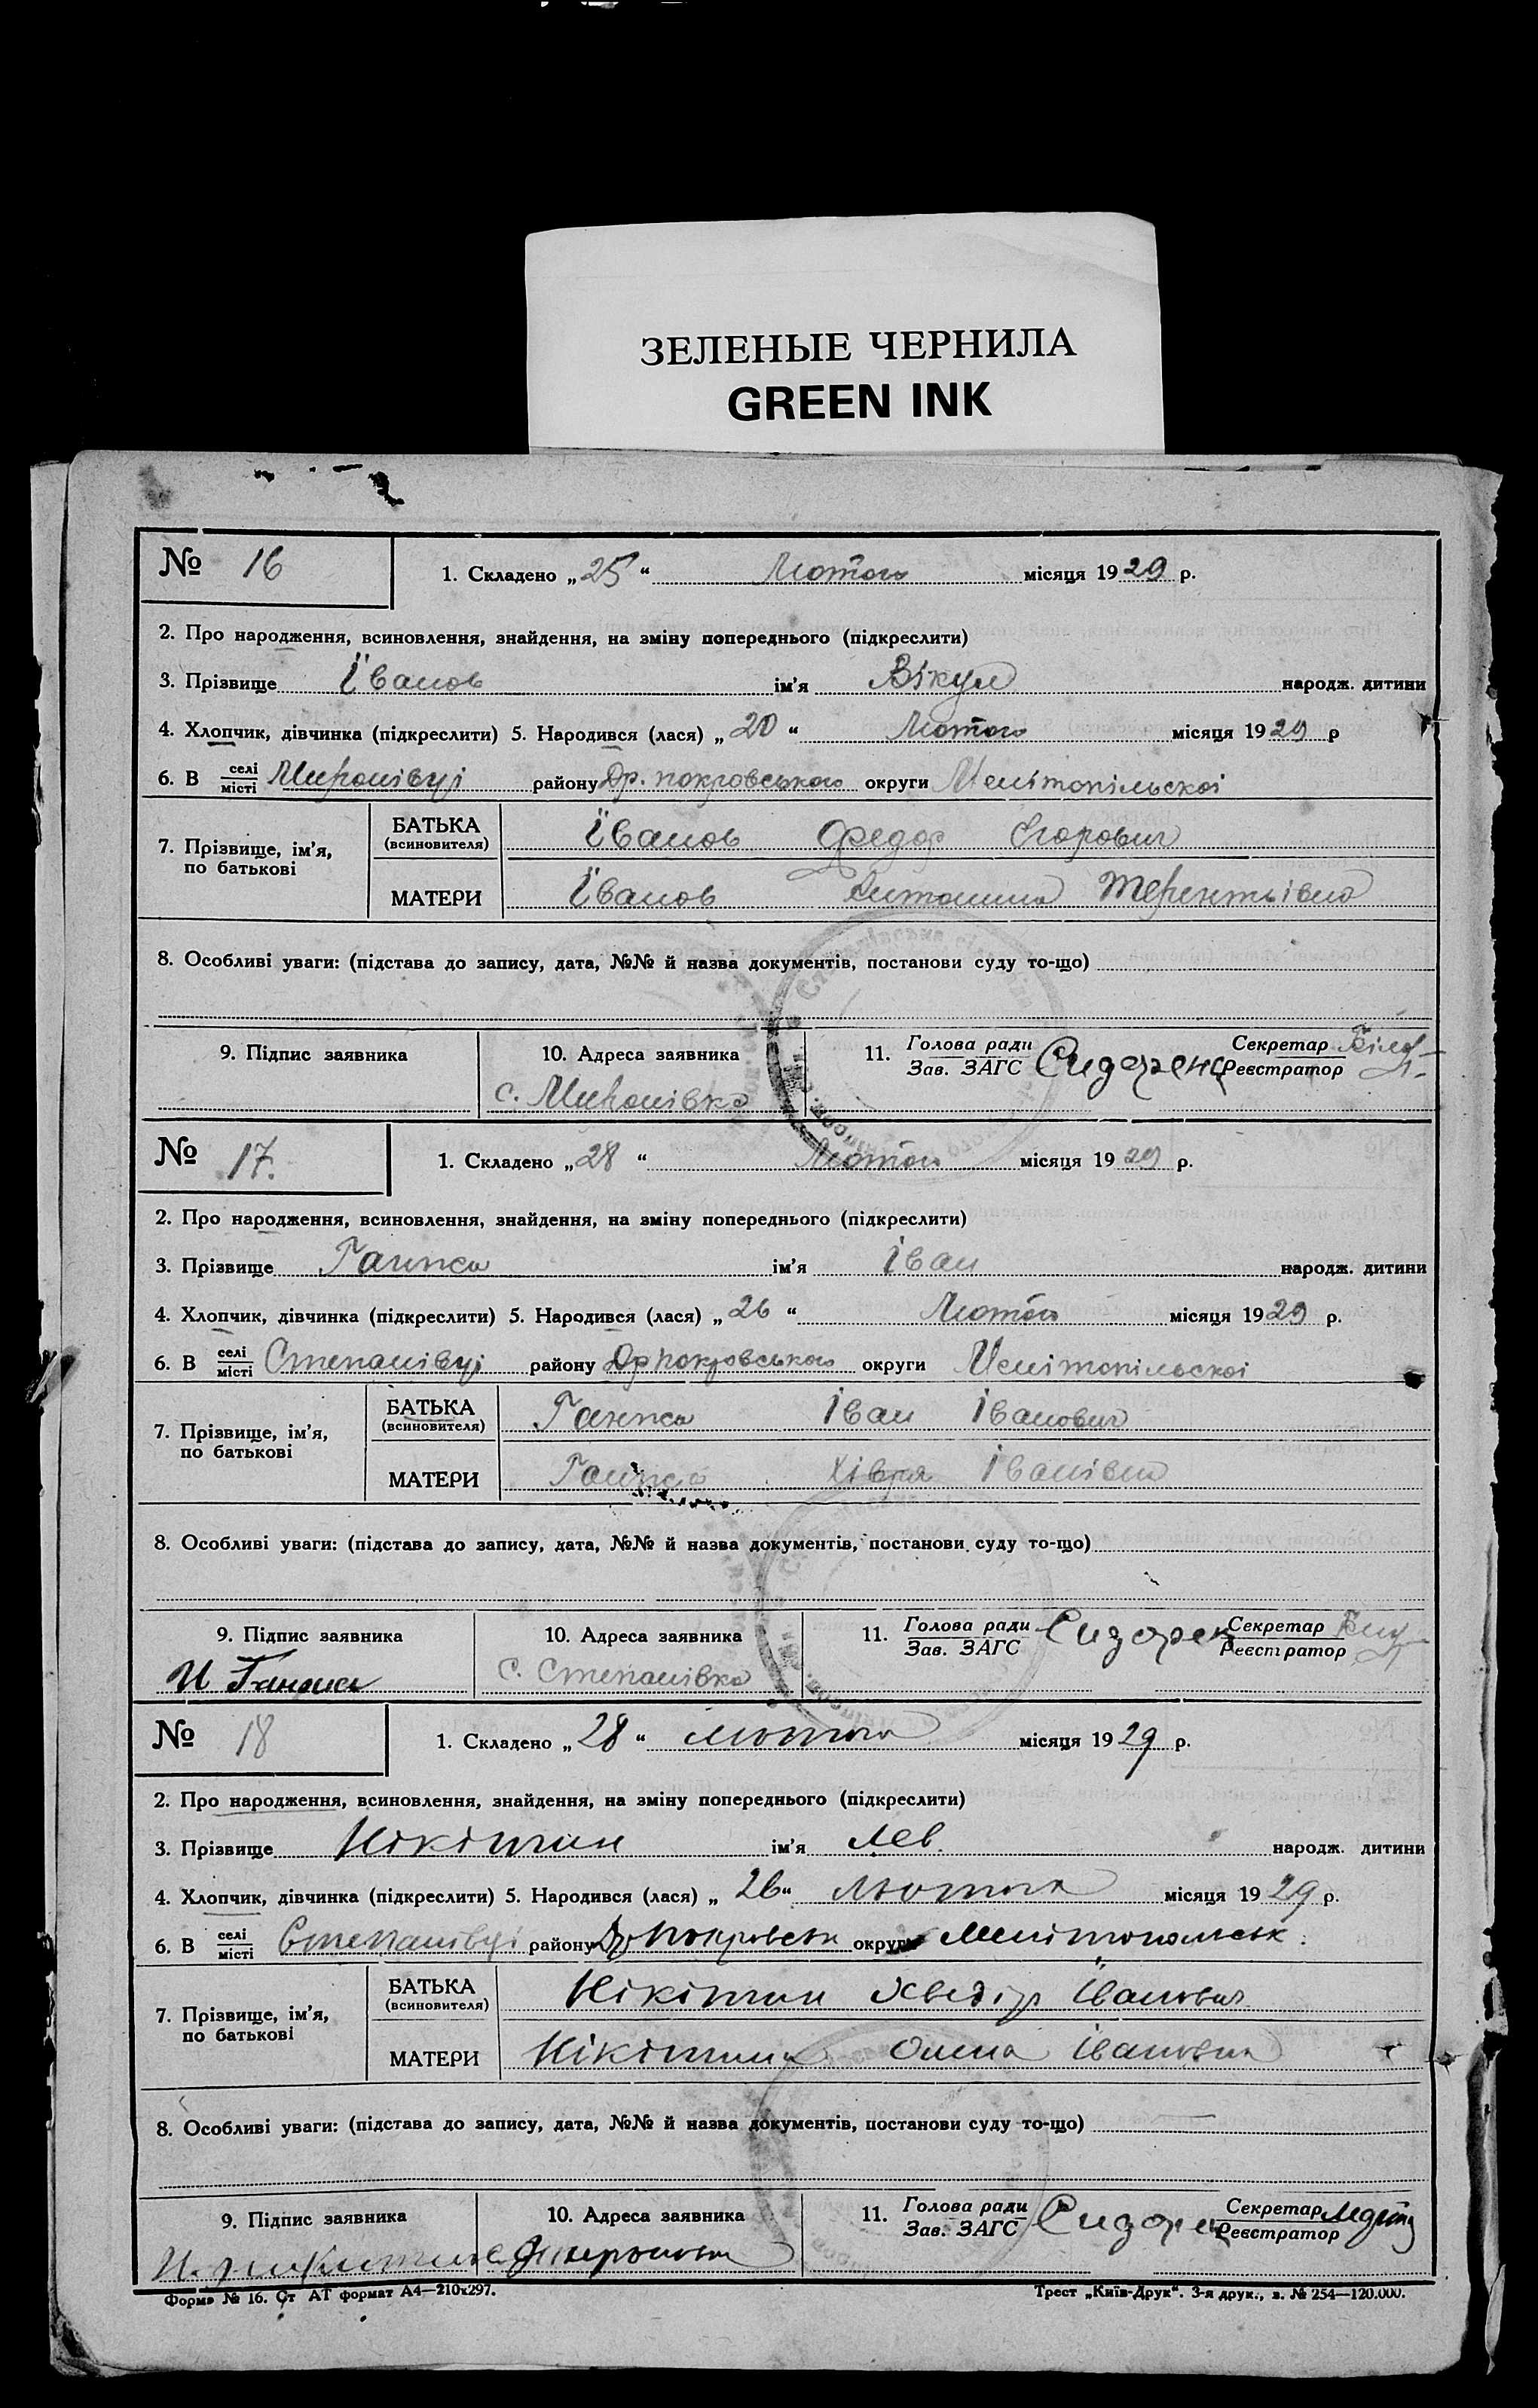 ЗЕЛЕНЫЕ ЧЕРНИЛА
GREEN INK
№ 16 1. Складено „25“ Лютого місяця 1929 р.
2. Про народження, всиновлення, знайдення, на зміну попереднього (підкреслити)
3. Прізвище Іванов ім'я Вікул народж. дитини
4. Хлопчик, дівчинка (підкреслити) 5. Народився (лася) „20“ Лютого місяця 1929 р
6. В селі місті Миронівці району Др. покровського округи Мелітопільскоі
7. Прізвище, ім'я, по батькові
БАТЬКА (всиновителя) Іванов Федор Єгорович
МАТЕРИ Іванов Антонина Терентьівна
8. Особливі уваги: (підстава до запису, дата, №№ й назва документів, постанови суду то-що)
9. Підпис заявника 10. Адреса заявника 11. Голова ради Зав. ЗАГС Секретар Реєстратор
с. Миронівка
№ 17. 1. Складено „28“ Лютого місяця 1929 р.
2. Про народження, всиновлення, знайдення, на зміну попереднього (підкреслити)
3. Прізвище Ганжа ім'я Іван народж. дитини
4. Хлопчик, дівчинка (підкреслити) 5. Народився (лася) „26“ Лютого місяця 1929 р.
6. В селі місті Степанівці району Др покровського округи Мелітопільскоі
7. Прізвище, ім'я, по батькові
БАТЬКА (всиновителя) Ганжа Іван Іванович
МАТЕРИ Ганжа Хівря Іванівна
8. Особливі уваги: (підстава до запису, дата, №№ й назва документів, постанови суду то-що)
9. Підпис заявника 10. Адреса заявника 11. Голова ради Зав. ЗАГС Секретар Реєстратор
И Ганжа с. Степанівка
№ 18 1. Складено „28“ лютого місяця 1929 р.
2. Про народження, всиновлення, знайдення, на зміну попереднього (підкреслити)
3. Прізвище Нікітин ім'я Лев народж. дитини
4. Хлопчик, дівчинка (підкреслити) 5. Народився (лася) „26“ Лютого місяця 1929 р.
6. В селі місті Степанівці району Др покровськ округи Мелітопольськ.
7. Прізвище, ім'я, по батькові
БАТЬКА (всиновителя) Нікітин Хведір Іванович
МАТЕРИ Нікітина Олена Івановна
8. Особливі уваги: (підстава до запису, дата, №№ й назва документів, постанови суду то-що)
9. Підпис заявника 10. Адреса заявника 11. Голова ради Зав. ЗАГС Секретар Реєстратор
Форма № 16. Ст АТ формат А4—210x297. Трест „Київ-Друк“. 3-я друк., з. № 254—120.000.